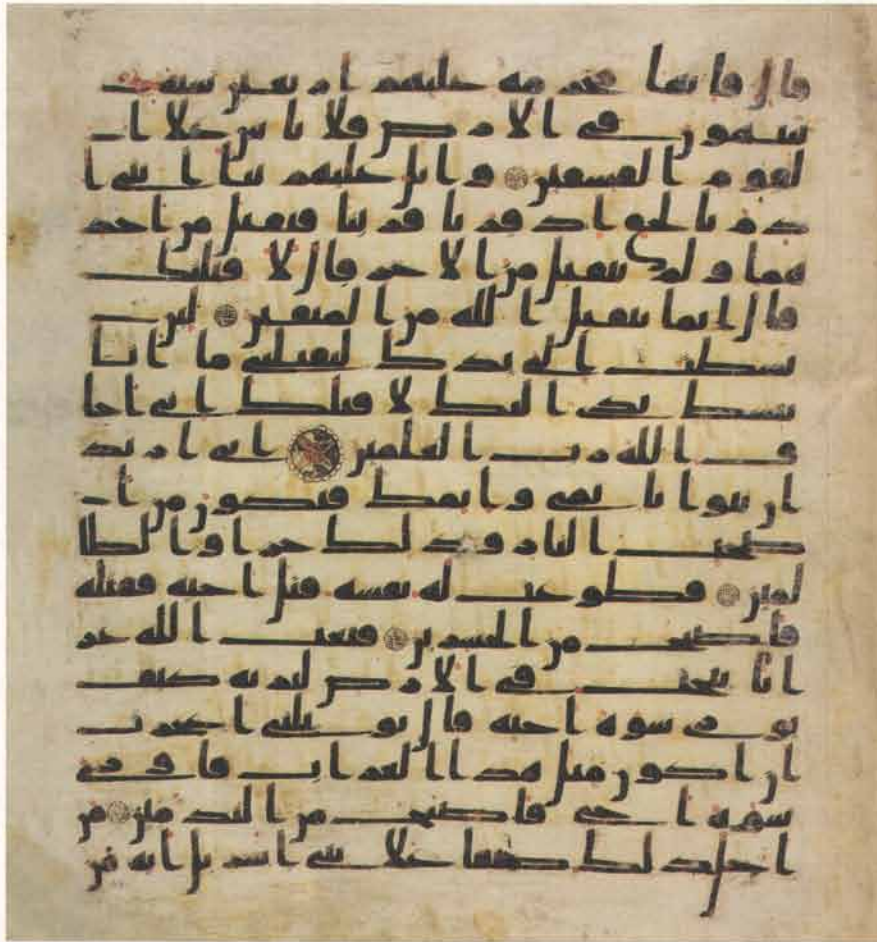 قال فانها محرمه عليهم اربعين سنه
يتيهون في الارض فلا تاس علا ا
لقوم الفسقين واتل عليهم نبا ابني ا
دم بالحق اذ قربا قربنا فتقبل من احد
هما ولم يتقبل من الاخر قال لاقتلنك
قال انما يتقبل الله من المتقين لئن
بسطت الي يدك لتقتلني ما انا
ببسط يدي اليك لاقتلك اني اخا
ف الله رب العلمين اني اريد
ان تبوا باثمي واثمك فتكون من ا
صحب النار وذلك جزاوا لظا
لمين فطوعت له نفسه قتل اخيه فقتله
فاصبح من الخسرين فبعث الله غر
ابا يبحث في الارض ليريه كيف
يوري سوه اخيه قال يويلتي اعجزت
ان اكون مثل هذا الغراب فاوري
سوه اخي فاصبح من الندمين من
اجل ذلك كتبنا علا بني اسريل انه من